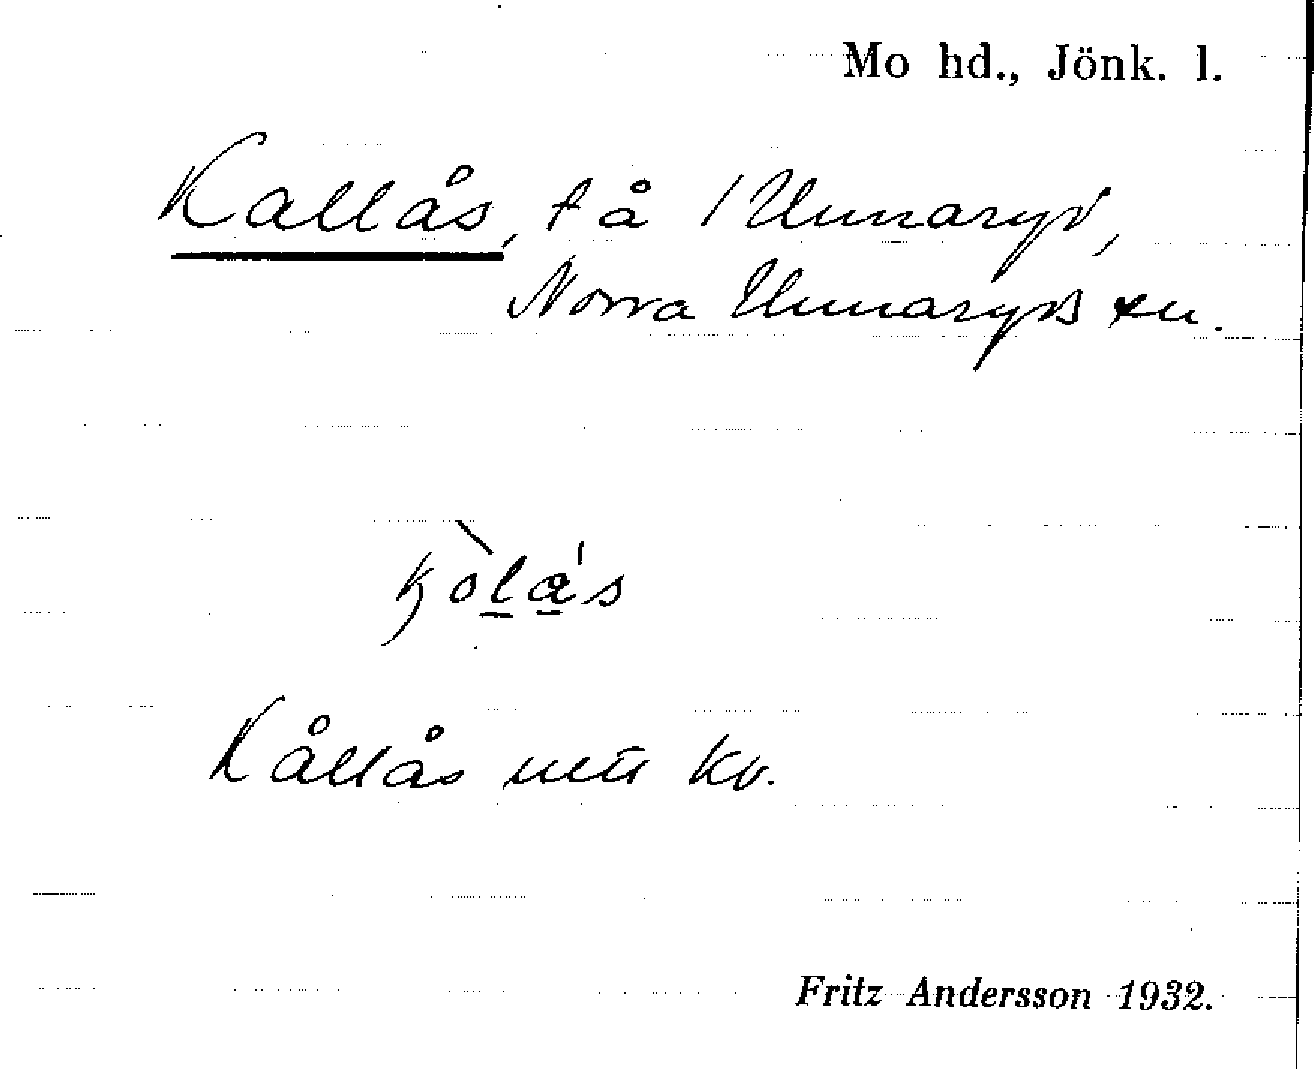 Mo hd., Jönk. l.
Kallås, t å 1 Unnaryd,
Norra Unnaryds sn.
kòlás
Kållås utt kv.
Fritz Andersson 1932.